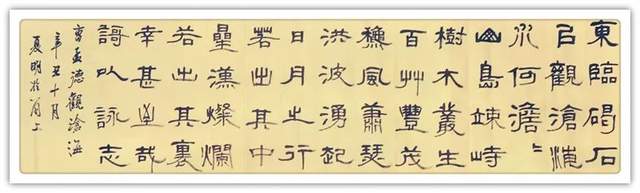 東臨碣石
㠯觀滄海
水何澹〻
山島竦峙
樹木叢生
百艸豐茂
龝風蕭瑟
洪波湧起
日月之行
若出其中
曐漢燦爛
若出其裏
幸甚至哉
謌以詠志
曹孟德觀滄海
辛丑十月
夏明於上